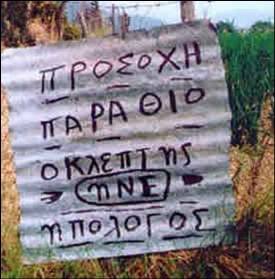 ΠΡΟΣΟΧΗ
ΠΑΡΑΘΙΟ
Ο ΚΛΕΠΤης
ηΝΕ
ηΠΟΛΟΓΟΣ